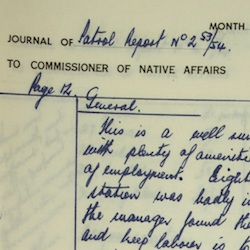 MONTH
JOURNAL OF Patrol Report No 2 53/54.
TO COMMISSIONER OF NATIVE AFFAIRS
Page 12.
General.
This is a well
with plenty of
of employment. Eight
station was badly
the manager found
and keep labour is